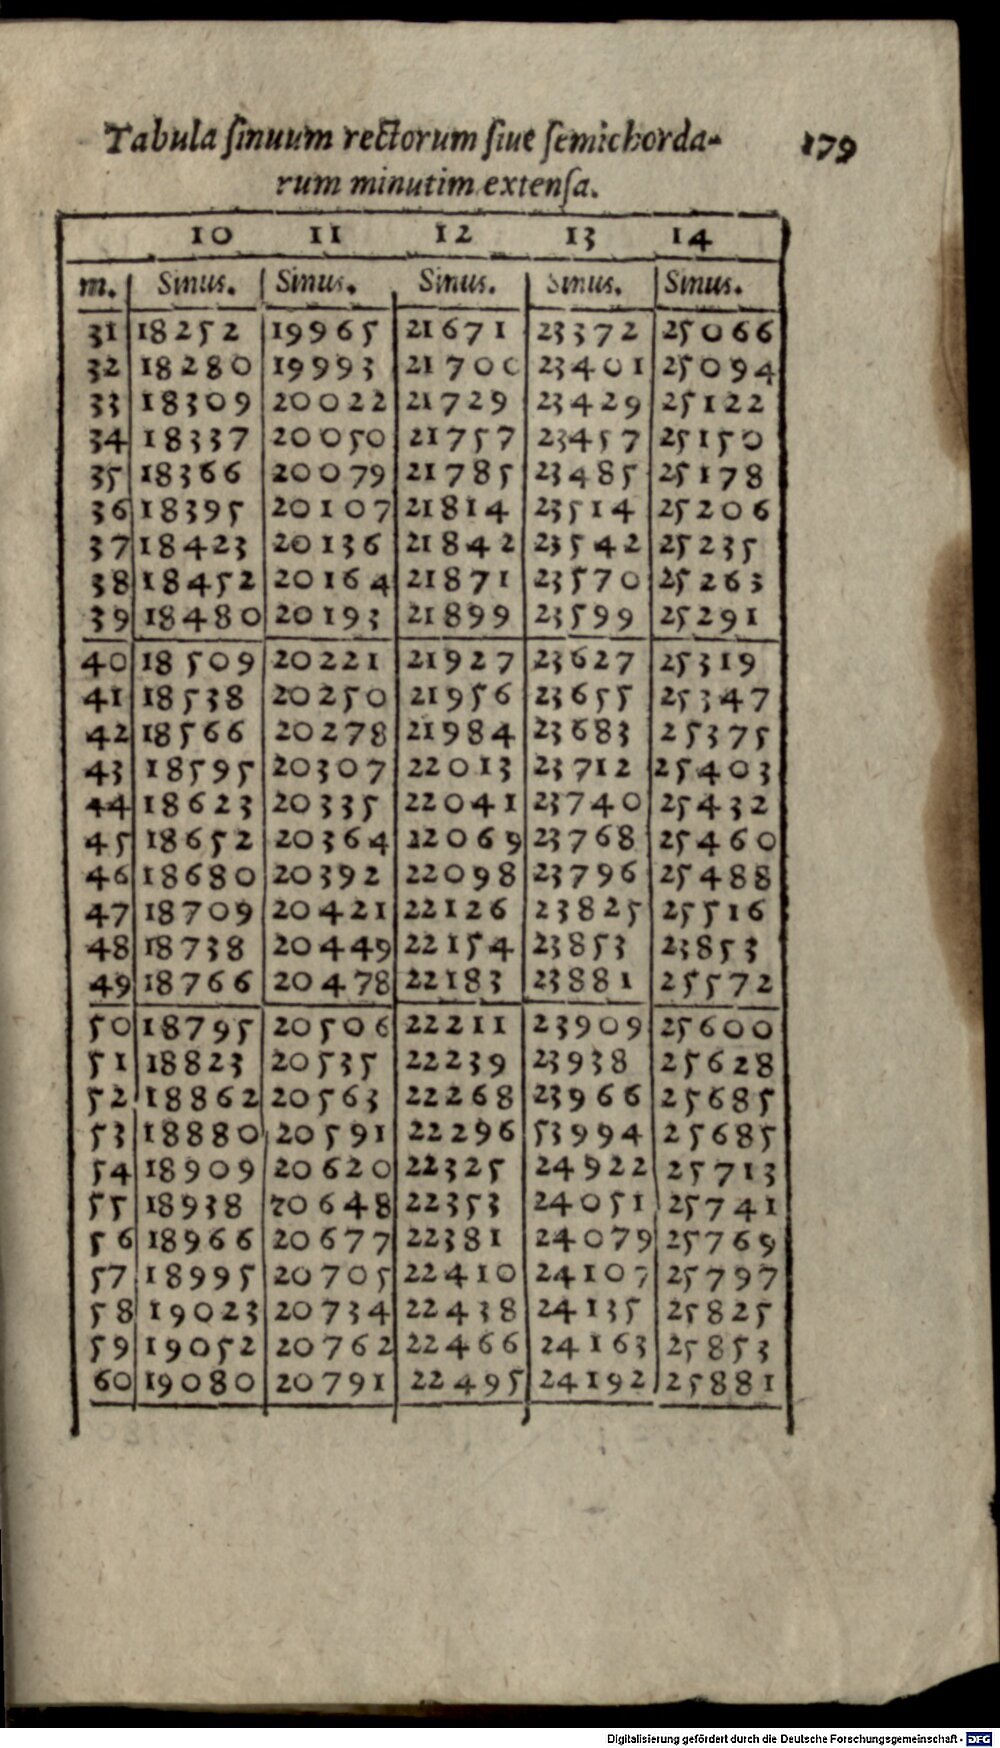 Tabula ſinuum rectorum ſiue ſemichorda- 179
rum minutim extenſa.
10 11 12 13 14
m. Sinus. Sinus. Sinus. Sinus. Sinus.
31 18252 19965 21671 23372 25066
32 18280 19993 21700 23401 25094
33 18309 20022 21729 23429 25122
34 18337 20050 21757 23457 25150
35 18366 20079 21785 23485 25178
36 18395 20107 21814 23514 25206
37 18423 20136 21842 23542 25235
38 18452 20164 21871 23570 25263
39 18480 20193 21899 23599 25291
40 18509 20221 21927 23627 25319
41 18538 20250 21956 23655 25347
42 18566 20278 21984 23683 25375
43 18595 20307 22013 23712 25403
44 18623 20335 22041 23740 25432
45 18652 20364 22069 23768 25460
46 18680 20392 22098 23796 25488
47 18709 20421 22126 23825 25516
48 18738 20449 22154 23853 23853
49 18766 20478 22183 23881 25572
50 18795 20506 22211 23909 25600
51 18823 20535 22239 23938 25628
52 18862 20563 22268 23966 25685
53 18880 20591 22296 53994 25685
54 18909 20620 22325 24922 25713
55 18938 20648 22353 24051 25741
56 18966 20677 22381 24079 25769
57 18995 20705 22410 24107 25797
58 19023 20734 22438 24135 25825
59 19052 20762 22466 24163 25853
60 19080 20791 22495 24192 25881
Digitalisierung gefördert durch die Deutsche Forschungsgemeinschaft - DFG